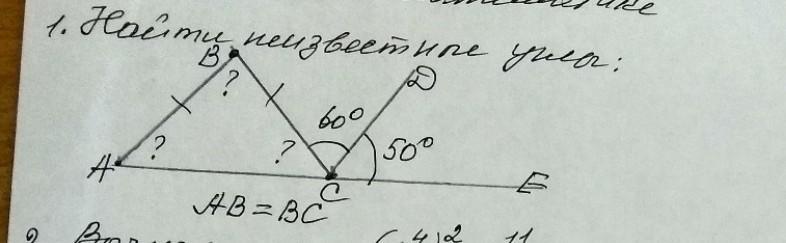 1. Найти неизвестные углы:
B
D
?
60°
A
?
?
50°
C
E
AB = BC
2.
(-4)² 11